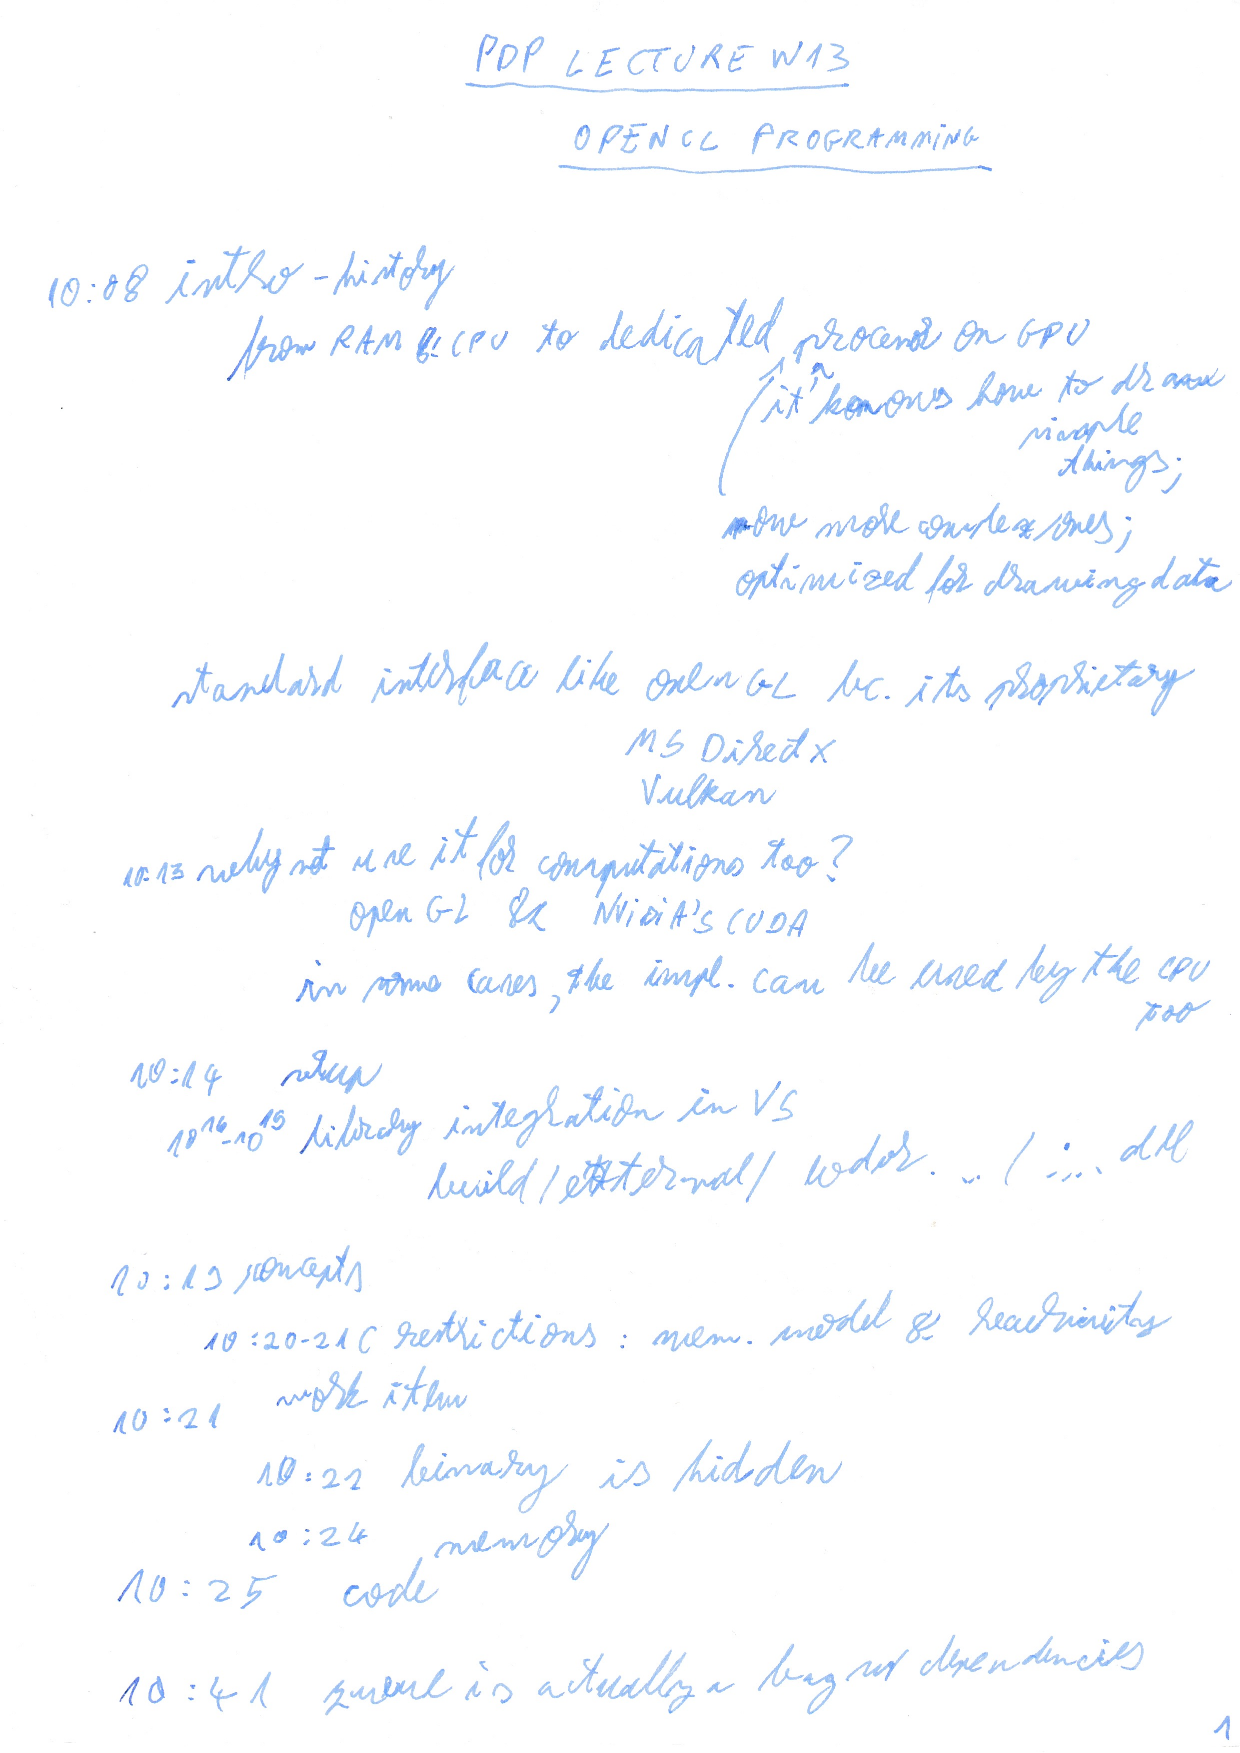 PDP LECTURE W13
OPENCL PROGRAMMING
10:08 intro - history
from RAM & CPU to dedicated procesor on GPU
it knows how to draw
simple
things;
now more complex ones;
optimized for drawing data
standard interface like open GL bc. its proprietary
MS Direct X
Vulkan
10:13 why not use it for computations too?
open GL & NVidiA'S CUDA
in some cases, the impl. can be used by the CPU
too
10:14 setup
10 16 - 10 19 library integration in VS
build / external / .. / :... dll
10:19 concepts
10:20-21 C restrictions : mem. model & recursivity
10:21 work item
10:22 binary is hidden
10:24 memory
10:25 code
10:41 queue is actually a bag w/ dependencies
1